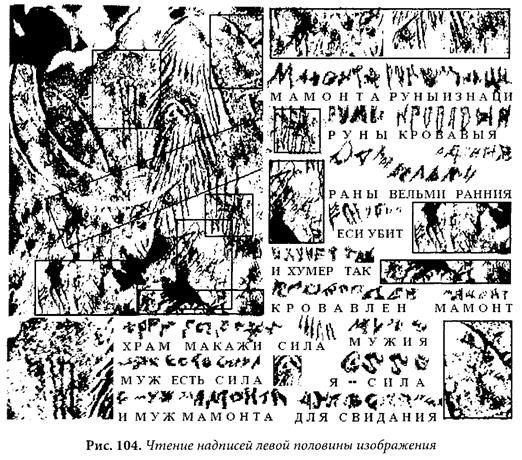 МАМОНТА РУНЫ ИЗНАЦИ
РУНЫ КРОВАВЫЯ
РАНЫ ВЕЛЬМИ РАННИЯ
ЕСИ УБИТ
И ХУМЕР ТАК
КРОВАВЛЕН МАМОНТ
ХРАМ МАКАЖИ СИЛА МУЖИЯ
МУЖ ЕСТЬ СИЛА Я -- СИЛА
И МУЖ МАМОНТА ДЛЯ СВИДАНИЯ
Рис. 104. Чтение надписей левой половины изображения